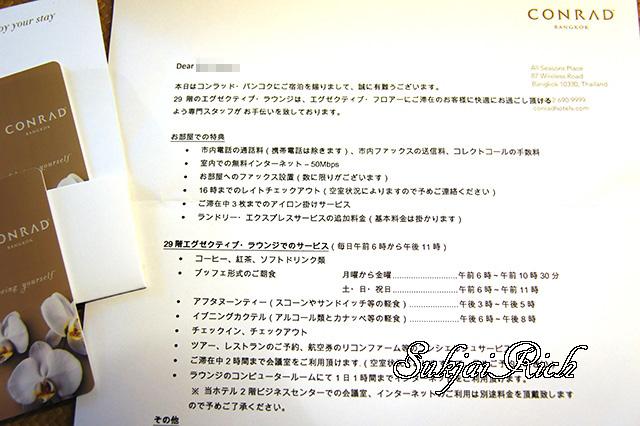 by your stay
CONRAD
BANGKOK
yourself
CONRAD
BANGKOK
being yourself
CONRAD
BANGKOK
All Seasons Place
87 Wireless Road
Bangkok 10330, Thailand
690/9999
conradhotels.com
Dear
本日はコンラッド・バンコクにご宿泊を賜りまして、誠に有難うございます。
29 階のエグゼクティブ・ラウンジは、エグゼクティブ・フロアーにご滞在のお客様に快適にお過ごし頂ける
よう専門スタッフが お手伝いを致しております。
お部屋での特典
• 市内電話の通話料(携帯電話は除きます)、市内ファックスの送信料、コレクトコールの手数料
• 室内での無料インターネット – 50Mbps
• お部屋へのファックス設置(数に限りがございます)
• 16時までのレイトチェックアウト(空室状況によりますので予めご連絡ください)
• ご滞在中3枚までのアイロン掛けサービス
• ランドリー・エクスプレスサービスの追加料金(基本料金は掛かります)
29 階エグゼクティブ・ラウンジでのサービス(毎日午前6時から午後11時)
• コーヒー、紅茶、ソフトドリンク類
• ブッフェ形式のご朝食 月曜から金曜……………午前6時~午前10時30分
土・日・祝日……………午前6時~午前11時
• アフタヌーンティー(スコーンやサンドイッチ等の軽食)……………午後3時~午後5時
• イブニングカクテル(アルコール類とカナッペ等の軽食)……………午後6時~午後8時
• チェックイン、チェックアウト
• ツアー、レストランのご予約、航空券のリコンファーム等の シェルジュサービス
• ご滞在中2時間まで会議室をご利用頂けます。(空室状
• ラウンジのコンピュータールームにて1日1時間までインターネットをご利用頂けます。
※ 当ホテル2階ビジネスセンターでの会議室、インターネットのご利用は別途料金を頂戴致します
ので予めご了承ください。
その他
Sukjai Rich